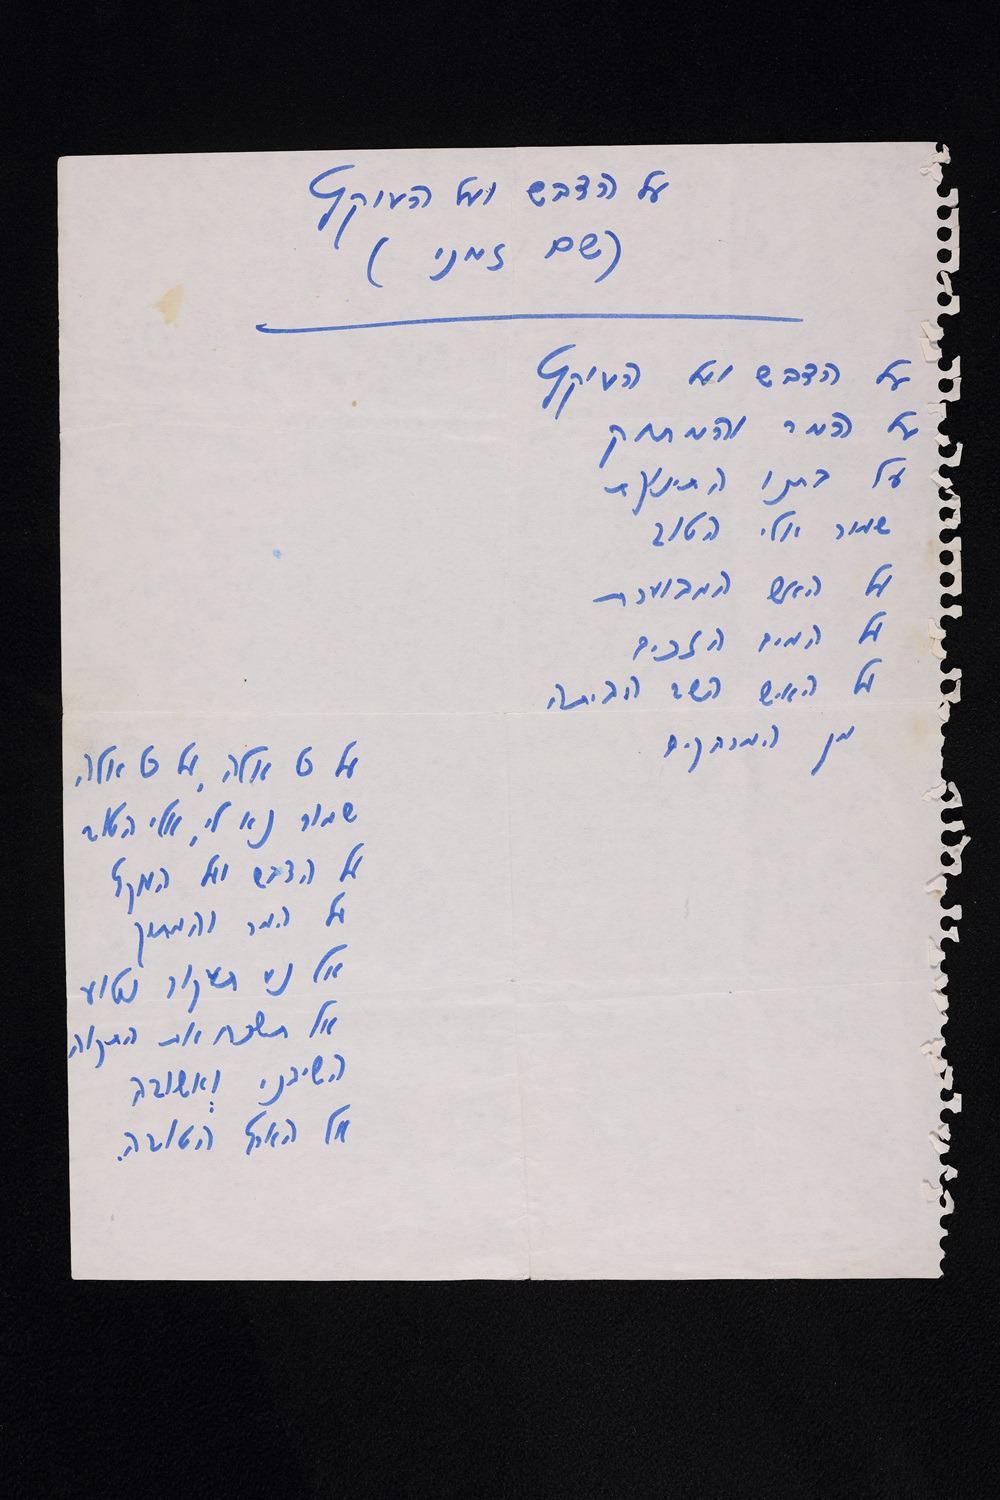 על הדבש ועל העוקץ
(שם זמני)
על הדבש ועל העוקץ
על המר והמתוק
על בתנו התינוקת
שמור אלי הטוב
על האש המבוערת
על המים הזכים
על האיש השב הביתה
מן המרחקים
על כל אלה, על כל אלה
שמור נא לי, אלי הטוב
על הדבש ועל העוקץ
על המר והמתוק
אל נא תעקור נטוע
אל תשכח את התקוה
השיבני ואשובה
אל הארץ הטובה.